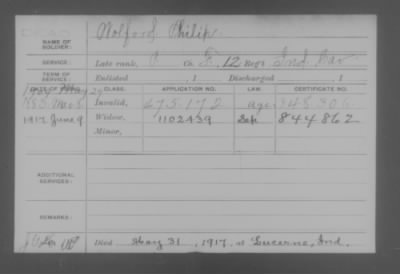 NAME OF SOLDIER: Wolford Philip
SERVICE: Late rank, C Co. F, 12 Reg't Ind. Cav
TERM OF SERVICE: Enlisted , 1 Discharged , 1
CLASS. APPLICATION NO. LAW. CERTIFICATE NO.
Invalid, 675.172 age 348.306
1917 June 9 Widow, 1102439 Sep 844862
Minor,
ADDITIONAL SERVICES:
REMARKS:
Died May 31, 1917, at Lucerne, Ind.